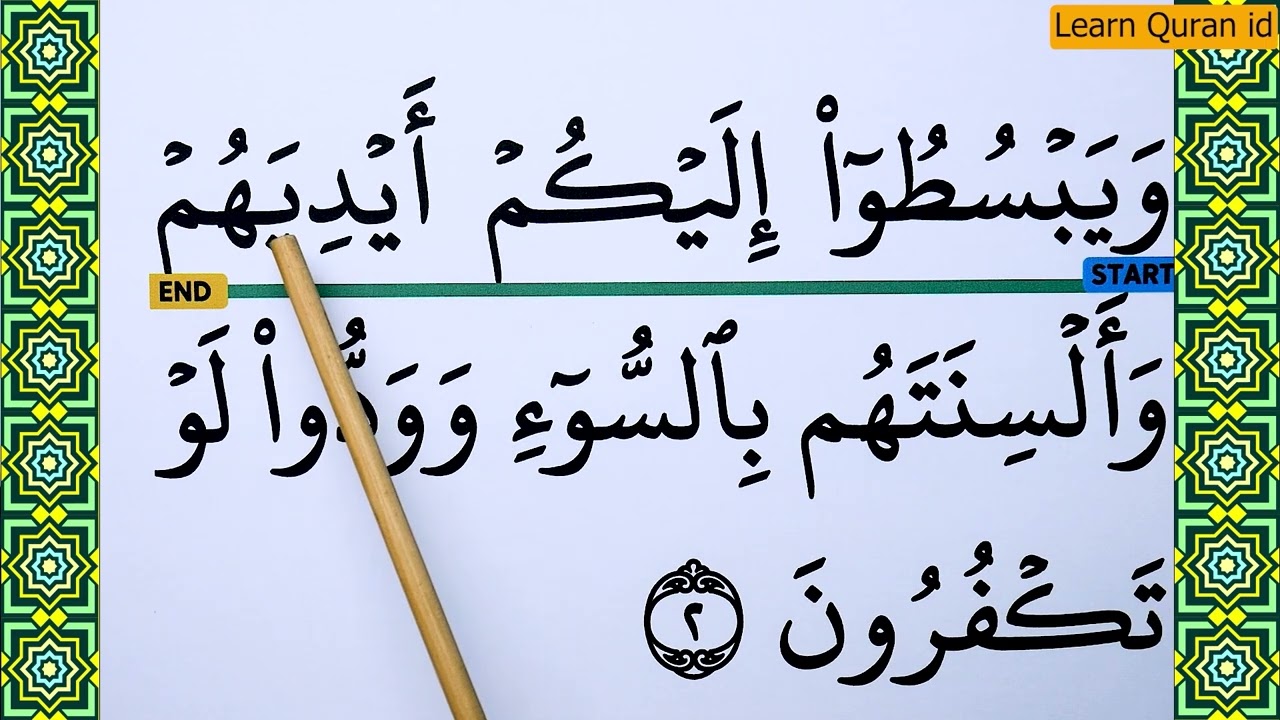 Learn Quran id
وَيَبْسُطُوٓا۟ إِلَيْكُمْ أَيْدِيَهُمْ
START
END
وَأَلْسِنَتَهُم بِٱلسُّوٓءِ وَوَدُّوا۟ لَوْ
تَكْفُرُونَ ٢